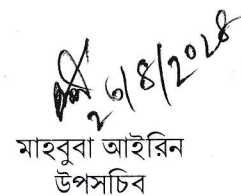 ২৩/৪/২০২৪
মাহবুবা আইরিন
উপসচিব